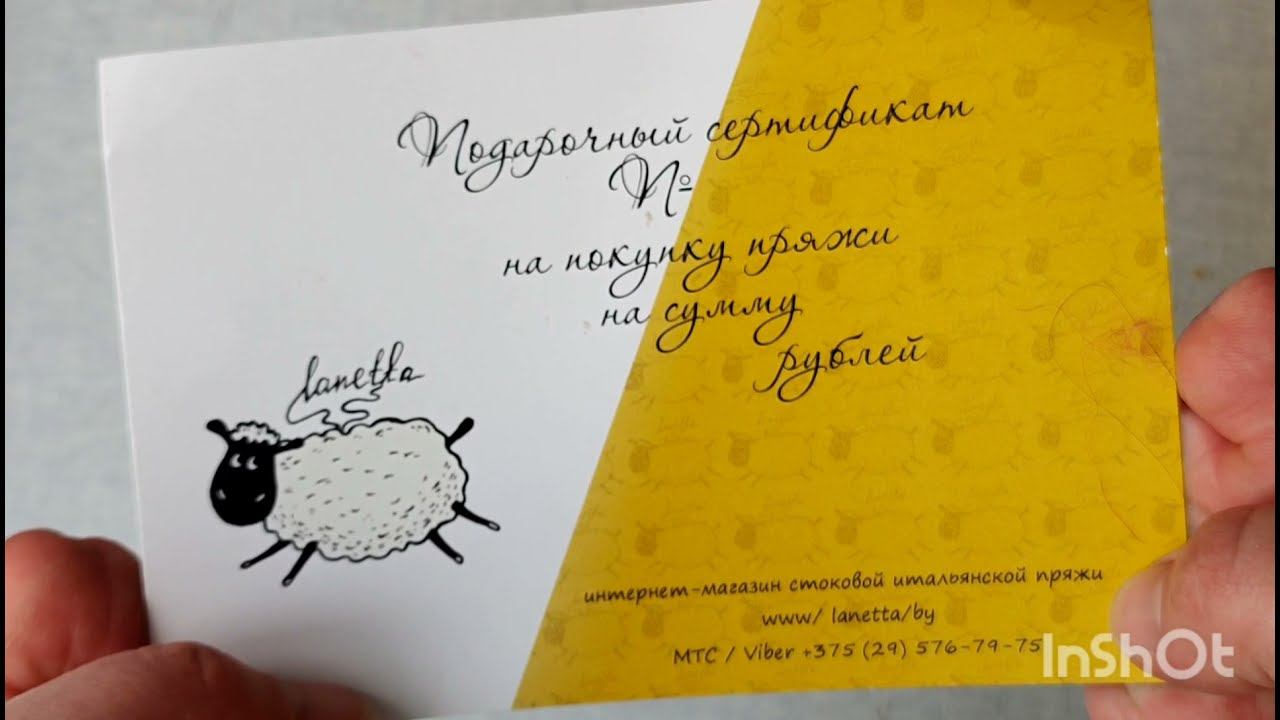 Подарочный сертификат
№
на покупку пряжи
на сумму
рублей
lanetta
интернет-магазин стоковой итальянской пряжи
www/ lanetta/by
МТС / Viber +375 (29) 576-79-75
InShOt